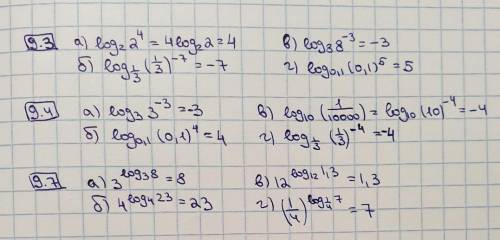 9.3 а) log₂ 2⁴ = 4log₂ 2 = 4 в) log₈ 8⁻³ = -3
б) log_{1/3} (1/3)⁻⁷ = -7 г) log₀,₁ (0,1)⁵ = 5
9.4 а) log₃ 3⁻³ = -3 в) log₁₀ (1/10000) = log₁₀ (10)⁻⁴ = -4
б) log₀,₁ (0,1)⁴ = 4 г) log_{1/3} (1/3)⁻⁴ = -4
9.7 а) 3^{log₃ 8} = 8 в) 12^{log₁₂ 1,3} = 1,3
б) 4^{log₄ 23} = 23 г) (1/4)^{log_{1/4} 7} = 7